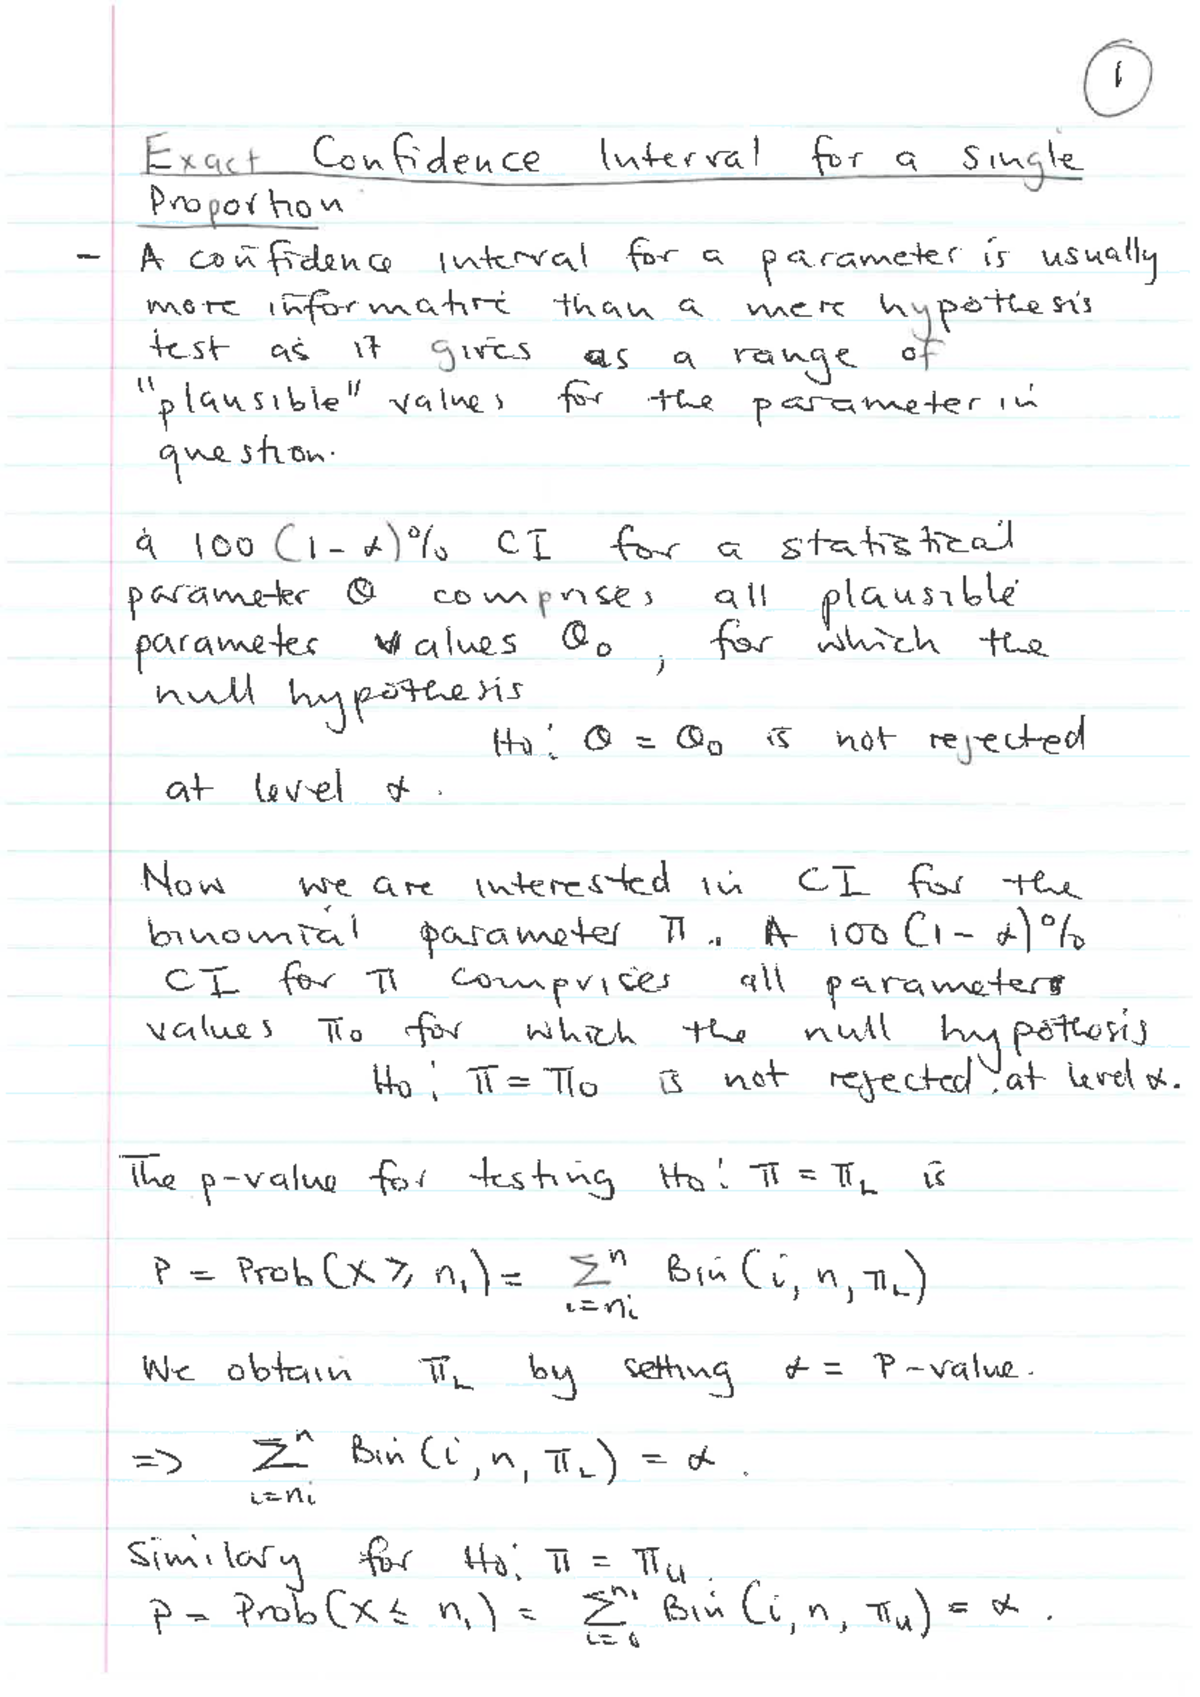 1
Exact Confidence Interval for a Single
Proportion
- A confidence interval for a parameter is usually
more informative than a mere hypothesis
test as it gives us a range of
"plausible" values for the parameter in
question.
a 100 (1-α)% CI for a statistical
parameter θ comprises all plausible
parameter values θ₀, for which the
null hypothesis
H₀: θ = θ₀ is not rejected
at level α.
Now we are interested in CI for the
binomial parameter π. A 100 (1-α)%
CI for π comprises all parameters
values π₀ for which the null hypothesis
H₀: π = π₀ is not rejected at level α.
The p-value for testing H₀: π = π_L is
P = Prob(X ≥ n₁) = Σⁿ_{i=nᵢ} Bin(i, n, π_L)
We obtain π_L by setting α = P-value.
=> Σⁿ_{i=nᵢ} Bin(i, n, π_L) = α.
Similary for H₀: π = π_u.
P = Prob(X ≤ n₁) = Σ^{n₁}_{i=0} Bin(i, n, π_u) = α.